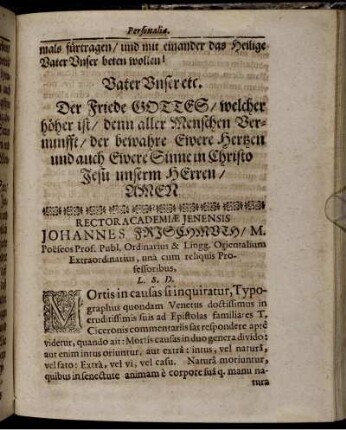 Personalia.
mals fürtragen/ und mit einander das Heilige
Vater Vnser beten wollen!
Vater Vnser etc.
Der Friede GOTTES/ welcher
höher ist/ denn aller Menschen Ver-
nunfft/ der bewahre Ewere Hertzen
und auch Ewere Sinne in Christo
Jesu unserm HErren/
AMEN
RECTOR ACADEMIÆ JENENSIS
JOHANNES FRISCHMVTH/ M.
Poëseos Prof. Publ. Ordinarius & Lingg. Orientalium
Extraordinarius, unà cum reliquis Pro-
fessoribus,
L. S. D.
MOrtis in causas si inquiratur, Typo-
graphus quondam Venetus doctissimus in
eruditissimis suis ad Epistolas familiares T.
Ciceronis commentariis sat respondere aptè
videtur, quando ait: Mortis causas in duo genera divido:
aut enim intus oriuntur, aut extrà: intus, vel naturâ,
vel fato: Extrà, vel vi, vel casu. Naturâ moriuntur,
quibus in senectute animam è corpore suâ q. manu na-
tura